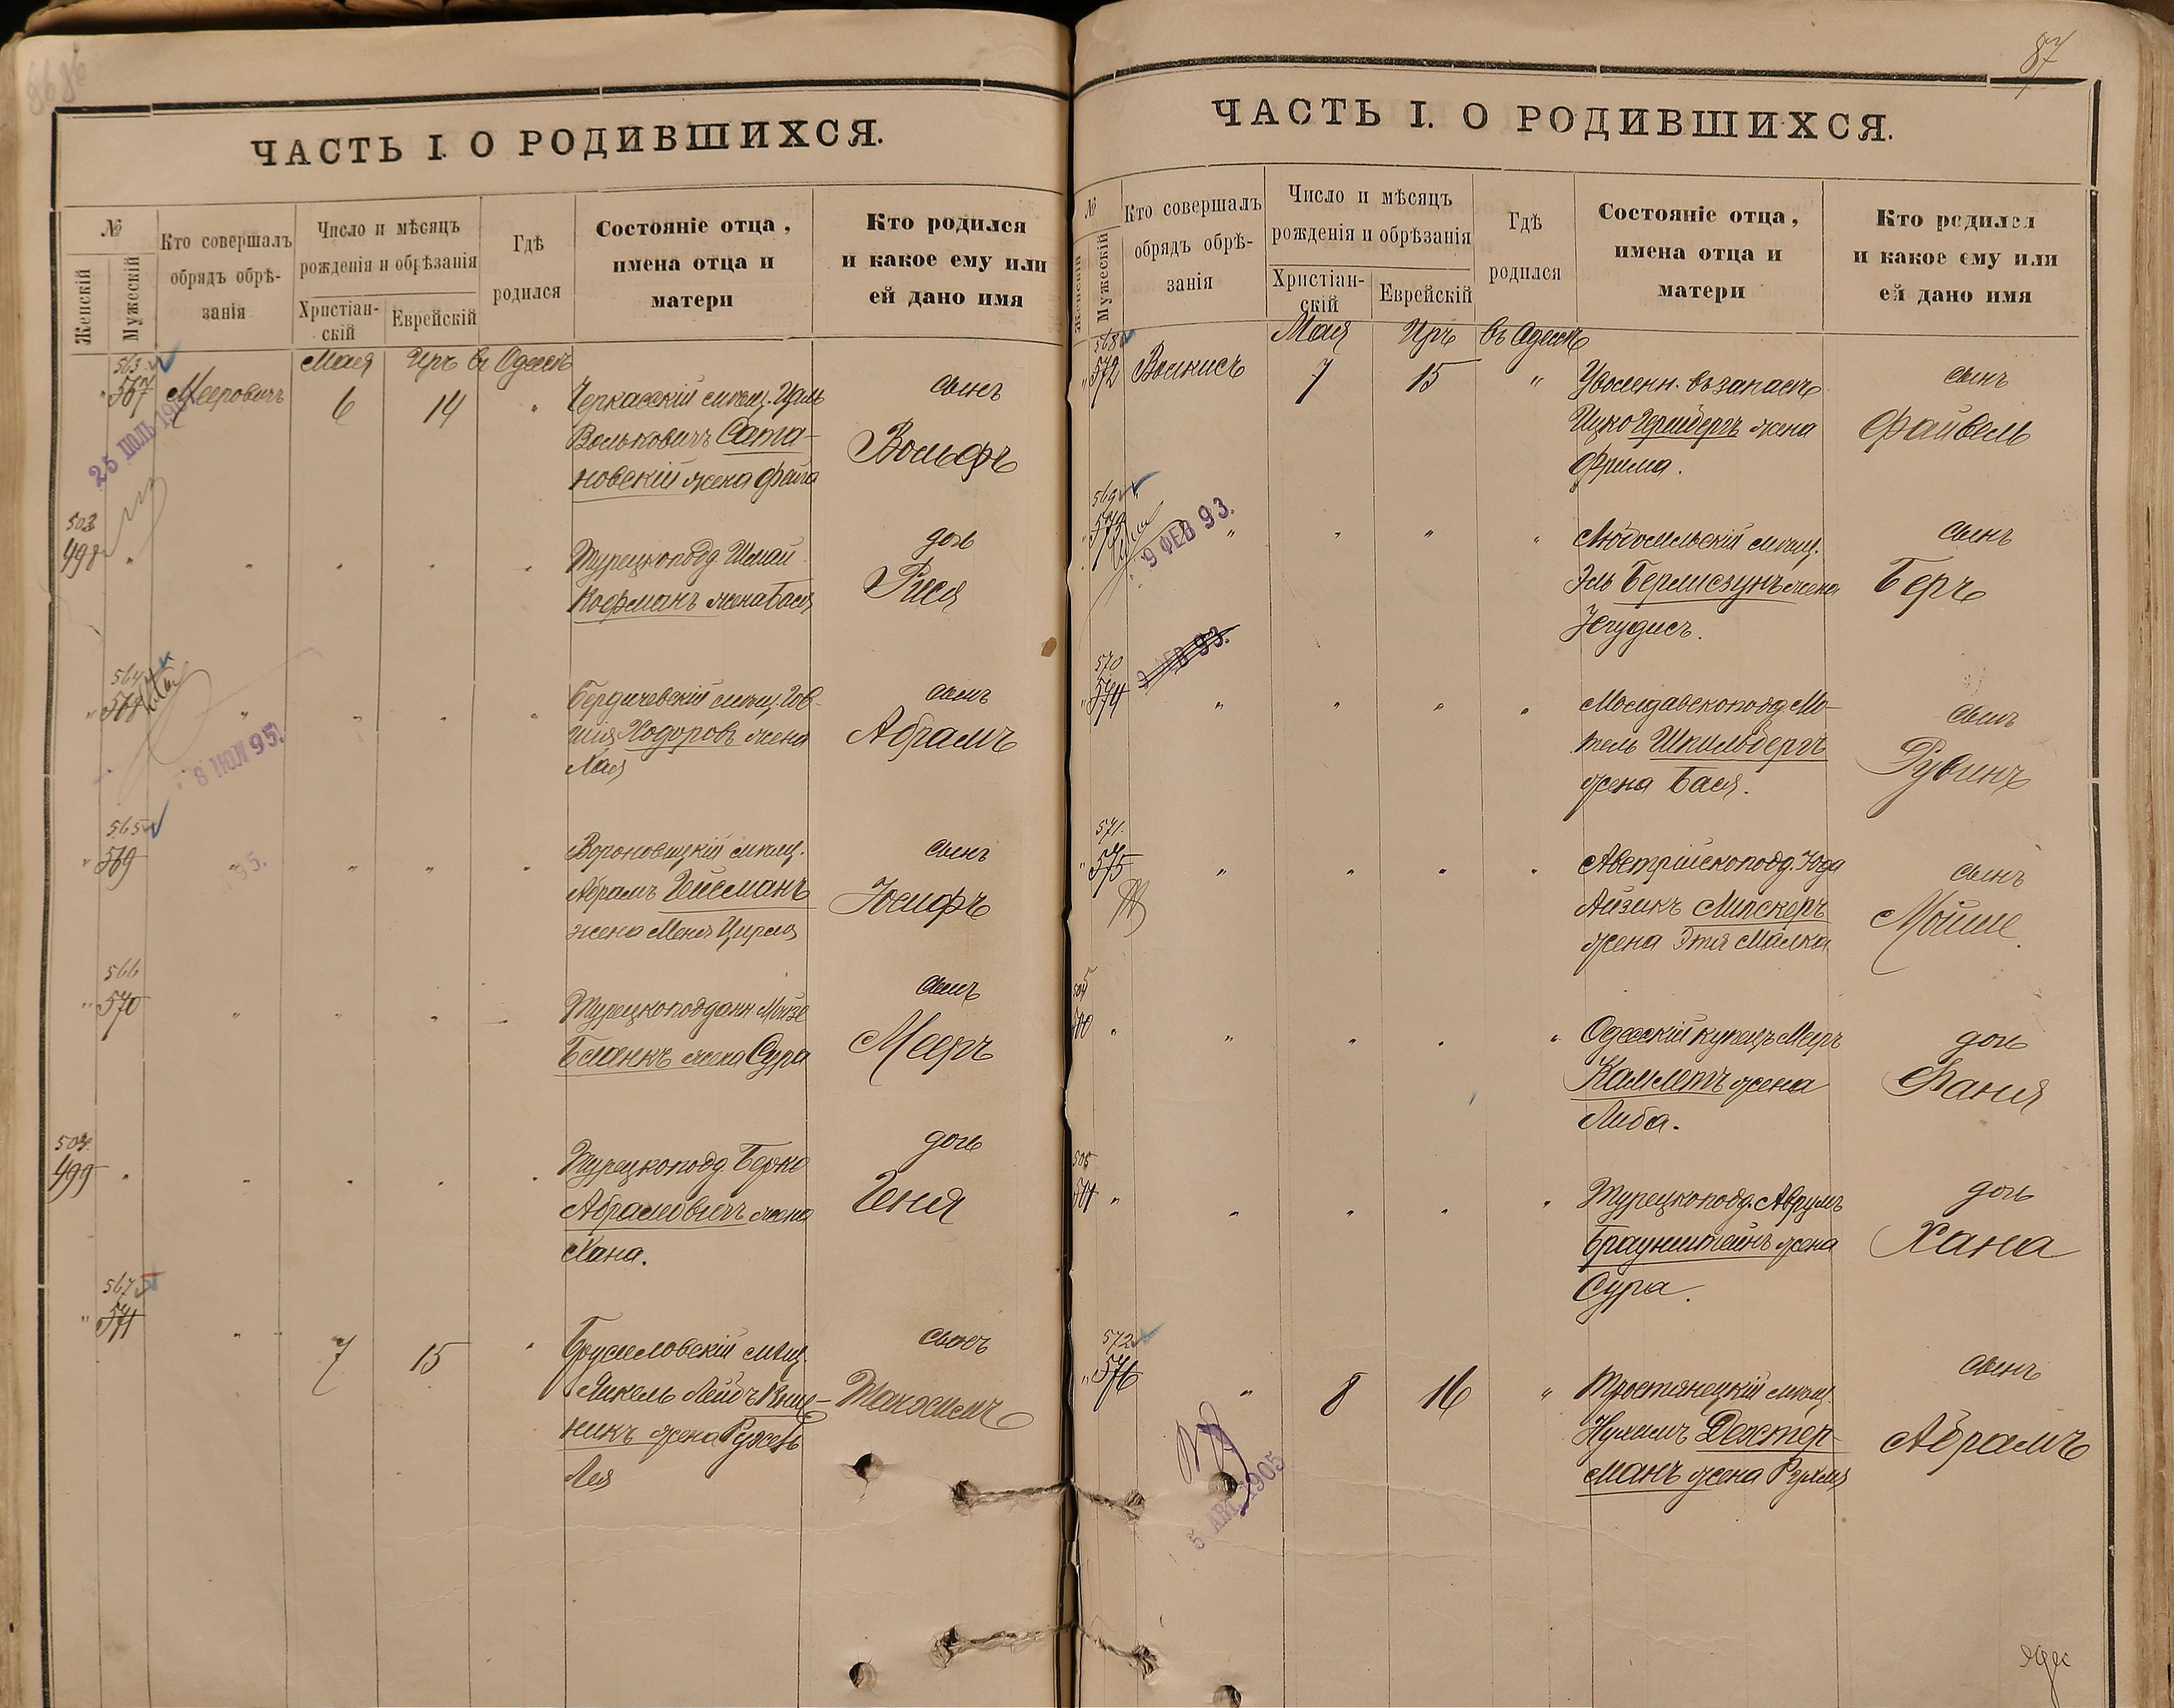 ЧАСТЬ I. О РОДИВШИХСЯ.
№
Женскій
Мужескій
Кто совершалъ
обрядъ обрѣ-
занія
Число и мѣсяцъ
рожденія и обрѣзанія
Христіан-
скій
Еврейскій
Гдѣ
родился
Состояніе отца,
имена отца и
матери
Кто родился
и какое ему или
ей дано имя
Мая Иръ въ Одессѣ
563
567 Мееровичъ 6 14 "
Черкасскій мѣщ.
Вольковичъ Сата-
новскій жена Файга
сынъ
Вольфъ
25 ІЮЛЬ
503
498
Турецкопод.
Кофманъ жена Бася
дочь
Рися
564
568
Бердичевскій мѣщ. Гов-
шія Ходоровъ жена
Хая
сынъ
Абрамъ
8 ІЮЛ 95.
565
569
Вороновицкій мѣщ.
Абрамъ Гейсманъ
жена Меня Цирля
сынъ
Іосифъ
95.
566
570
Турецкоподданн. Мойзе
Бланкъ жена Сура
сынъ
Мееръ
504
499
Турецкопод. Берко
Абрамовичъ жена
Хана.
дочь
Геня
567
571 7 15
Брусиловскій мѣщ.
Янкель Лейбъ
никъ жена
Лея
сынъ
87
ЧАСТЬ I. О РОДИВШИХСЯ.
№
Женскій
Мужескій
Кто совершалъ
обрядъ обрѣ-
занія
Число и мѣсяцъ
рожденія и обрѣзанія
Христіан-
скій
Еврейскій
Гдѣ
родился
Состояніе отца,
имена отца и
матери
Кто родился
и какое ему или
ей дано имя
Мая Иръ въ Одессѣ
568
572 7 15 "
Уволенн. въ запасъ
Ицко жена
Фрима.
сынъ
Файвель
569
573
9 ФЕВ 93.
мѣщ.
Эль жена
сынъ
Беръ
570
574
9 ФЕВ 93.
Молдавскопод. Мо-
тель Шпильбергъ
жена Бася.
сынъ
Рувинъ
571.
575
Австрійскопод. Юда
Айзикъ Липскеръ
жена Этя Малка
сынъ
Мойше
500
Одесскій купецъ Мееръ
Камлетъ жена
Либа.
дочь
Фаня
505
501
Турецкопод. Аврумъ
Браунштейнъ жена
Сура.
дочь
Хана
572
576 " 8 16 "
Тростянецкій мѣщ.
Нухимъ Дехтер-
манъ жена Рухля
сынъ
Абрамъ
5 АВГ. 1905